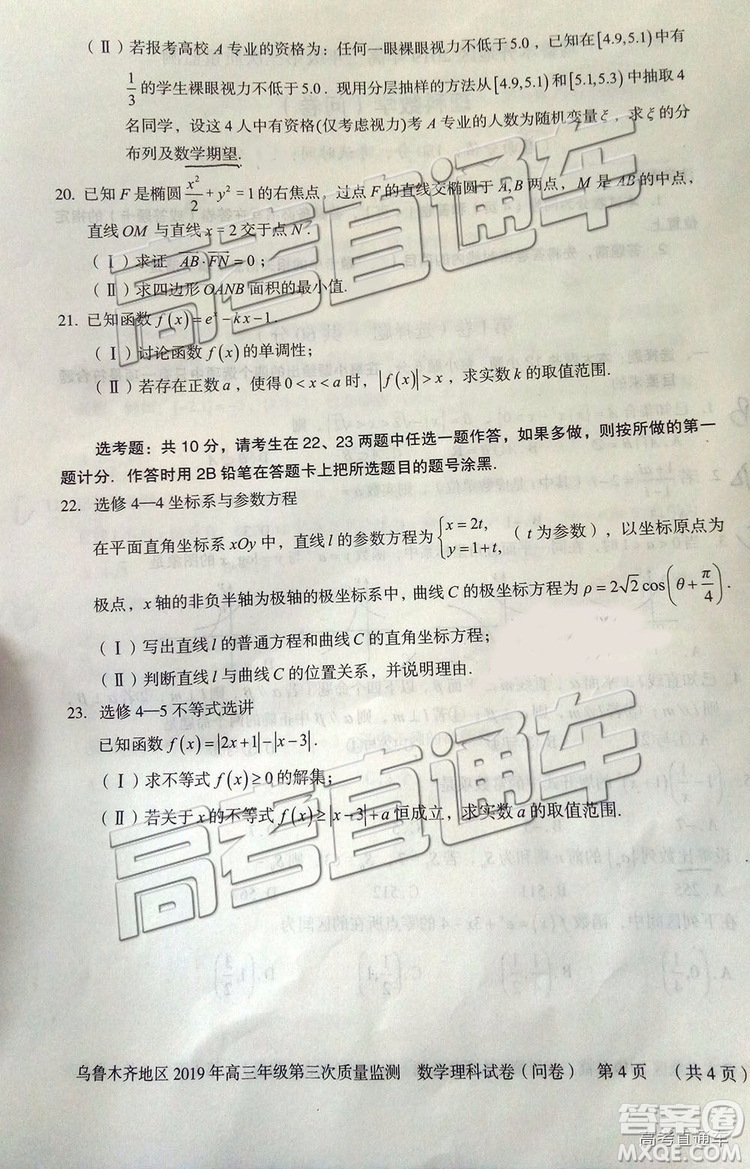 (Ⅱ)若报考高校 A 专业的资格为：任何一眼裸眼视力不低于5.0，已知在[4.9,5.1)中有
1/3 的学生裸眼视力不低于5.0．现用分层抽样的方法从[4.9,5.1)和[5.1,5.3)中抽取 4
名同学，设这 4 人中有资格(仅考虑视力)考 A 专业的人数为随机变量ξ，求ξ的分
布列及数学期望.
20. 已知 F 是椭圆 x²/2 + y² = 1 的右焦点，过点 F 的直线交椭圆于 A,B 两点，M 是 AB 的中点，
直线 OM 与直线 x = 2 交于点 N．
(Ⅰ)求证 AB·FN = 0；
(Ⅱ)求四边形 OANB 面积的最小值.
21. 已知函数 f(x) = eˣ - kx - 1.
(Ⅰ)讨论函数 f(x) 的单调性；
(Ⅱ)若存在正数 a，使得 0 < x < a 时，|f(x)| > x，求实数 k 的取值范围.
选考题：共 10 分，请考生在 22、23 两题中任选一题作答，如果多做，则按所做的第一
题计分．作答时用 2B 铅笔在答题卡上把所选题目的题号涂黑.
22. 选修 4—4 坐标系与参数方程
在平面直角坐标系 xOy 中，直线 l 的参数方程为 { x = 2t, y = 1 + t, （t 为参数），以坐标原点为
极点，x 轴的非负半轴为极轴的极坐标系中，曲线 C 的极坐标方程为 ρ = 2√2 cos(θ + π/4).
(Ⅰ)写出直线 l 的普通方程和曲线 C 的直角坐标方程；
(Ⅱ)判断直线 l 与曲线 C 的位置关系，并说明理由.
23. 选修 4—5 不等式选讲
已知函数 f(x) = |2x + 1| - |x - 3|.
(Ⅰ)求不等式 f(x) ≥ 0 的解集；
(Ⅱ)若关于 x 的不等式 f(x) ≥ |x - 3| + a 恒成立，求实数 a 的取值范围.
乌鲁木齐地区 2019 年高三年级第三次质量监测 数学理科试卷（问卷） 第 4 页 （共 4 页）
高考直通车
高考直通车
答案圈
高考直通车
MXQE.COM